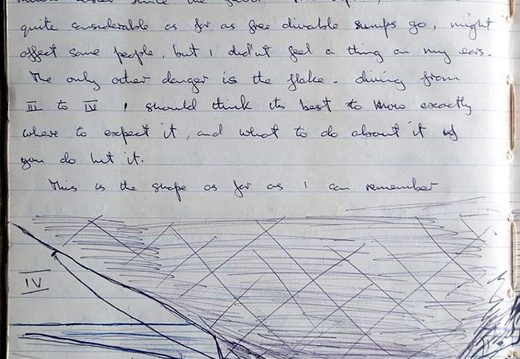 quite considerable as far as free divable sumps go, might
affect some people, but I didn't feel a thing on my ears.
The only other danger is the flake. diving from
III to IV I should think its best to know exactly
where to expect it, and what to do about it if
you do hit it.
This is the shape as far as I can remember
IV